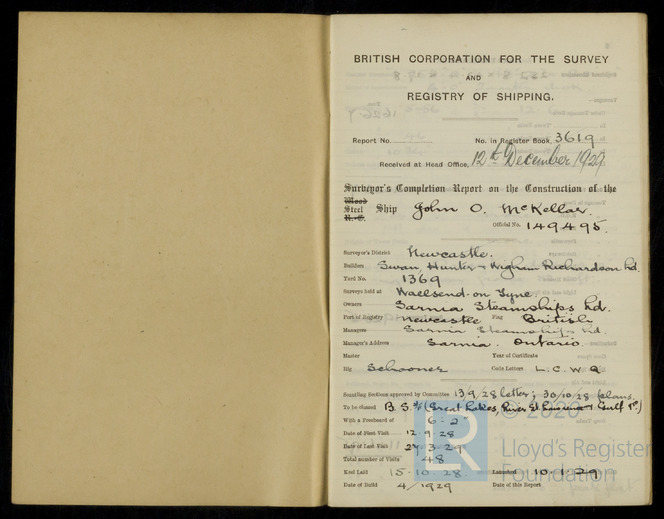 BRITISH CORPORATION FOR THE SURVEY
AND
REGISTRY OF SHIPPING.
Report No. No. in Register Book 3619
Received at Head Office, 12th December 1929
Surveyor's Completion Report on the Construction of the
Wood
Steel Ship John O. McKellar.
Official No. 149495.
Surveyor's District Newcastle.
Builders Swan, Hunter & Wigham Richardson Ld.
Yard No. 1369
Surveys held at Wallsend-on-Tyne
Owners Sarnia Steamships Ld.
Port of Registry Newcastle Flag British
Managers Sarnia Steamships Ld.
Manager's Address Sarnia. Ontario.
Master Year of Certificate
Rig Schooner Code Letters L.C.W.Q.
Scantling Sections approved by Committee 13/9/28 letter; 30/10/28 plans
To be classed B.S. (Great Lakes, River St Lawrence & Gulf
With a Freeboard of 6-2"
Date of First Visit 12.9.28
Date of Last Visit 27.3.29
Total number of Visits 48
Keel Laid 15-10-28 Launched 10-1-29
Date of Build 4/1929 Date of this Report
© 2020
Lloyd's Register
Foundation
LR